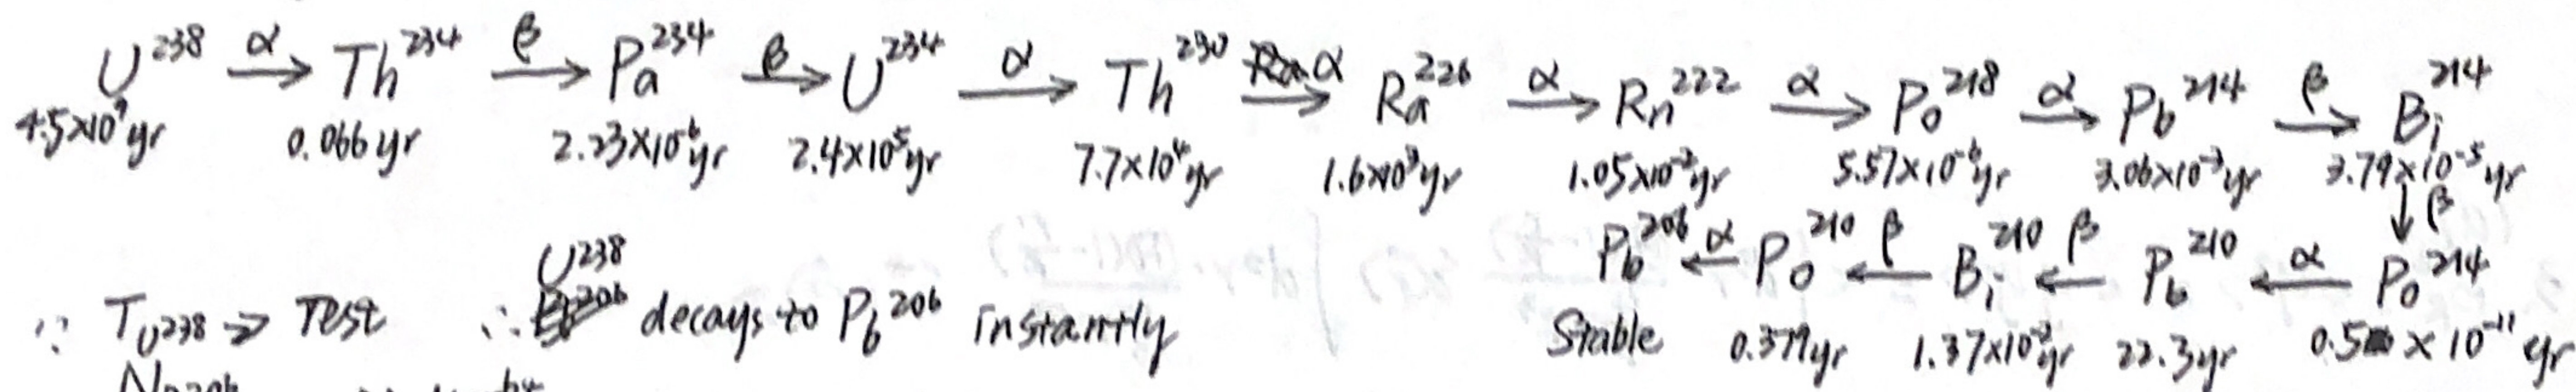 U²³⁸ —α→ Th²³⁴ —β→ Pa²³⁴ —β→ U²³⁴ —α→ Th²³⁰ —α→ Ra²²⁶ —α→ Rn²²² —α→ Po²¹⁸ —α→ Pb²¹⁴ —β→ Bi²¹⁴
4.5×10⁹yr 0.066yr 2.23×10⁻⁶yr 2.4×10⁵yr 7.7×10⁴yr 1.6×10³yr 1.05×10⁻²yr 5.57×10⁻⁶yr 3.06×10⁻³yr 3.79×10⁻⁵yr
↓β
Pb²⁰⁶ ←α— Po²¹⁰ ←β— Bi²¹⁰ ←β— Pb²¹⁰ ←α— Po²¹⁴
Stable 0.379yr 1.37×10⁻²yr 22.3yr 0.5×10⁻¹¹yr
∵ T_U²³⁸ ≫ Test ∴ U²³⁸ decays to Pb²⁰⁶ instantly